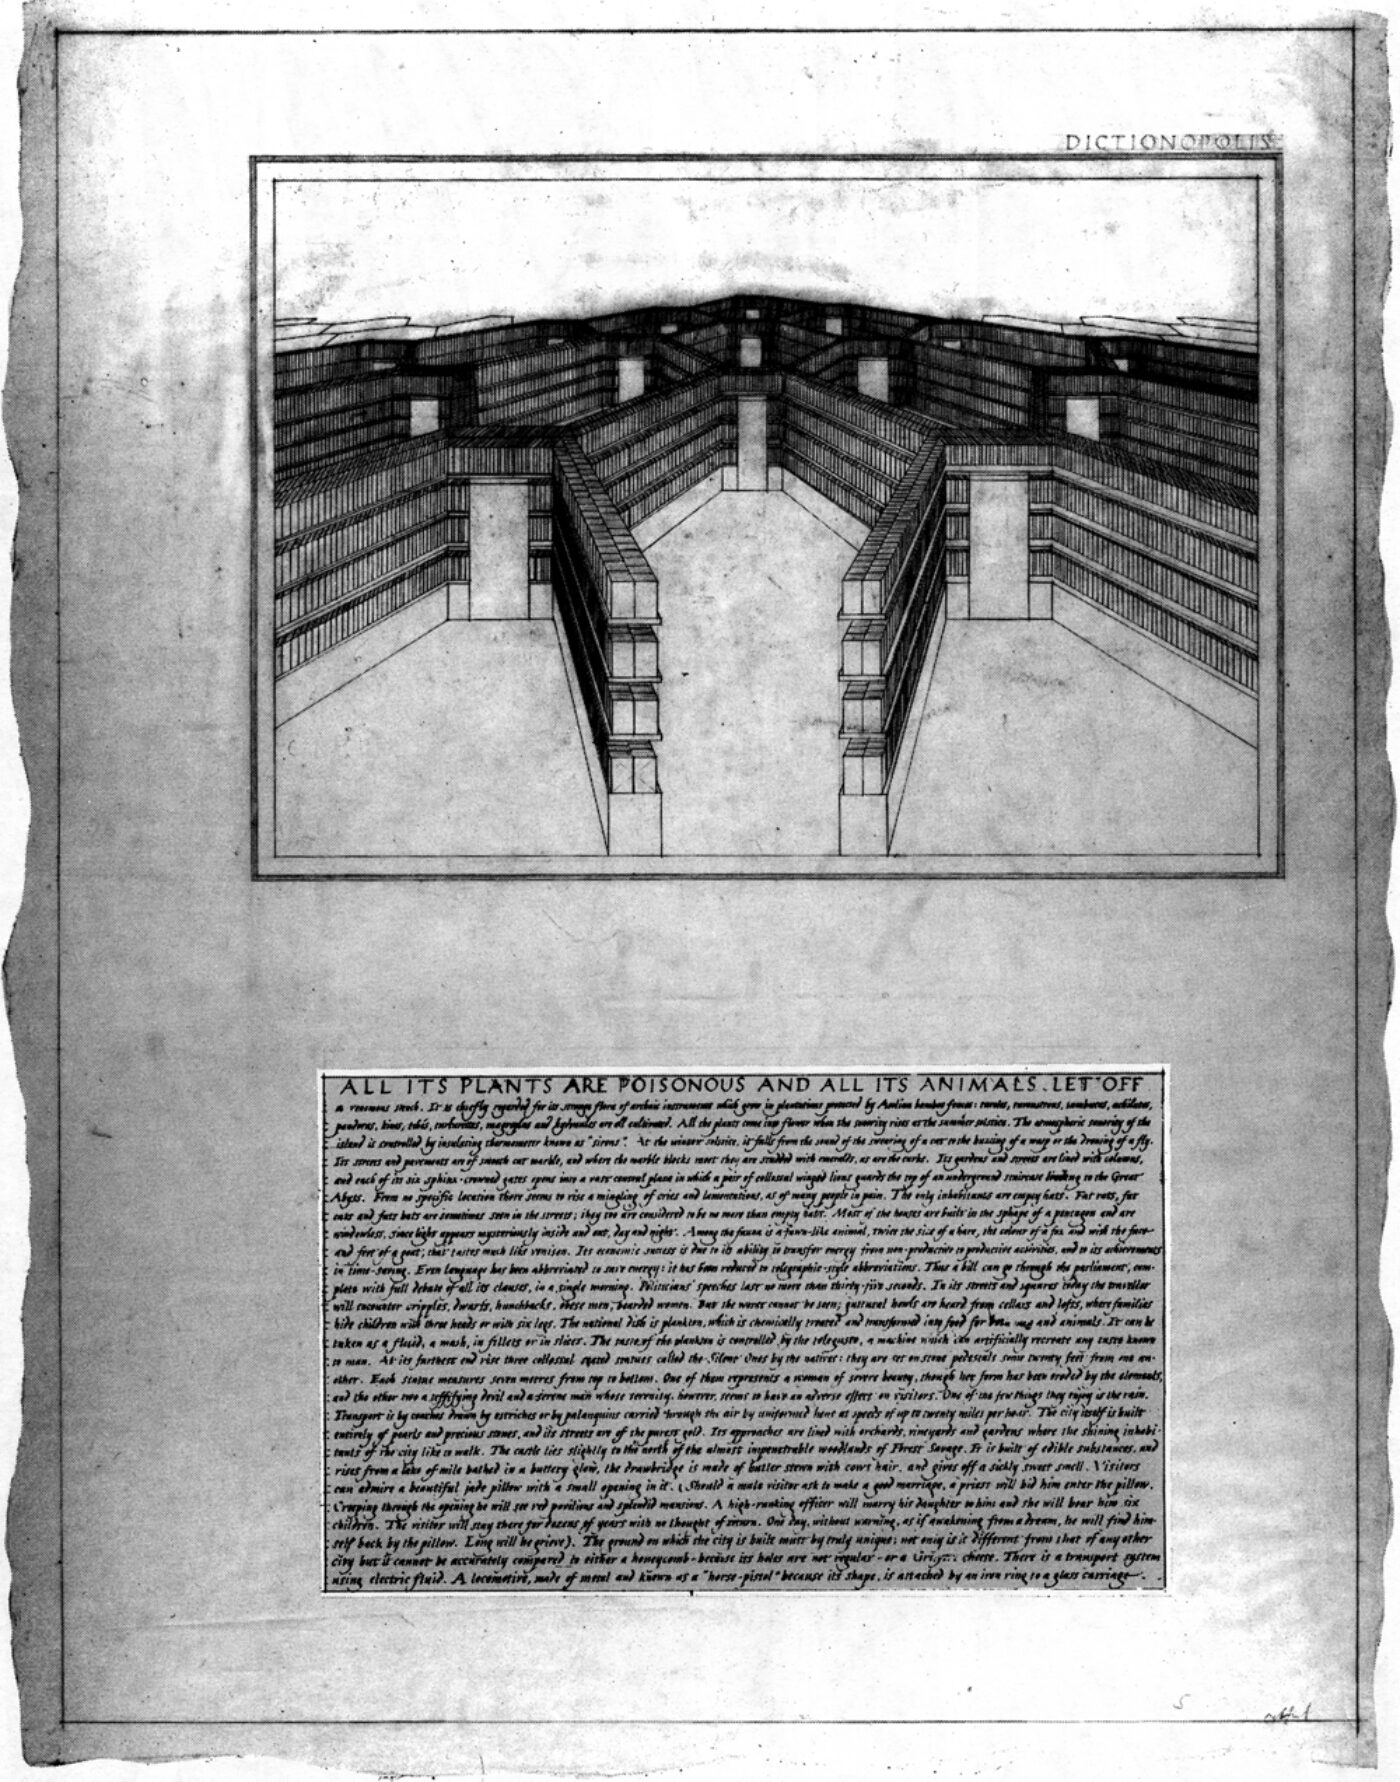 DICTIONOPOLIS
ALL ITS PLANTS ARE POISONOUS AND ALL ITS ANIMALS LET OFF
a venomous stench. It is chiefly regarded for its strange flora of archaic instruments which grow in plantations protected by Aeolian bamboo fences:
are all cultivated. All the plants come into flower when the sonority rises at the summer solstice. The atmospheric sonority of the
island is controlled by insulating thermometer known as "sirens". At the winter solstice, it falls from the sound of the swearing of a cat to the buzzing of a wasp or the droning of a fly.
Its streets and pavements are of smooth cut marble, and where the marble blocks meet they are studded with emeralds, as are the curbs. Its gardens and streets are lined with columns,
and each of its six sphinx-crowned gates opens into a vast central plaza in which a pair of collosal winged lions guards the top of an underground staircase leading to the Great
Abyss. From no specific location there seems to rise a mingling of cries and lamentations, as of many people in pain. The only inhabitants are empty hats. Fat rats, fat
cats and fats bats are sometimes seen in the streets; they too are considered to be no more than empty hats. Most of the houses are built in the sphape of a pentagon and are
windowless, since light appears mysteriously inside and out, day and night. Among the fauna is a fawn-like animal, twice the size of a hare, the colour of a fox and with the face
and feet of a goat; that tastes much like venison. Its economic success is due to its ability to transfer energy from non-productive to productive activities, and to its achievements
in time-saving. Even language has been abbreviated to save energy: it has been reduced to telegraphic-style abbreviations. Thus a bill can go through the parliament, com-
plete with full debate of all its clauses, in a single morning. Politicians' speeches last no more than thirty-five seconds. In its streets and squares today the traveller
will encounter cripples, dwarfs, hunchbacks, obese men, bearded women. But the worst cannot be seen; guttural howls are heard from cellars and lofts, where families
hide children with three heads or with six legs. The national dish is plankton, which is chemically treated and transformed into food for both and animals. It can be
taken as a fluid, a mash, in fillets or in slices. The taste of the plankton is controlled by the telegusto, a machine which can artificially recreate any taste known
to man. At its furthest end rise three collossal seated statues called the Silent Ones by the natives: they are set on stone pedestals some twenty feet from one an-
other. Each statue measures seven metres from top to bottom. One of them represents a woman of severe beauty, though her form has been eroded by the elements,
and the other two a devil and a serene man whose serenity, however, seems to have an adverse effect on visitors. One of the few things they enjoy is the rain.
Transport is by coaches drawn by ostriches or by palanquins carried through the air by uniformed hens at speeds of up to twenty miles per hour. The city itself is built
entirely of pearls and precious stones, and its streets are of the purest gold. Its approaches are lined with orchards, vineyards and gardens where the shining inhabi-
tants of the city like to walk. The castle lies slightly to the north of the almost impenetrable woodlands of Forest Savage. It is built of edible substances, and
rises from a lake of milc bathed in a buttery glow, the drawbridge is made of butter stewn with cows hair, and gives off a sickly sweet smell. Visitors
can admire a beautiful jade pillow with a small opening in it. (Should a male visitor ask to make a good marriage, a priest will bid him enter the pillow.
Creeping through the opening he will see red pavilions and splendid mansions. A high-ranking officer will marry his daughter to him and she will bear him six
children. The visitor will stay there for dozens of years with no thought of return. One day, without warning, as if awakening from a dream, he will find him-
self back by the pillow. Long will he grieve). The ground on which the city is built must by truly unique: not only is it different from that of any other
city but it cannot be accurately compared to either a honeycomb - because its holes are not regular - or a cheese. There is a transport system
using electric fluid. A locomotive, made of metal and known as a "horse-pistol" because its shape, is attached by an iron ring to a glass carriage.
5